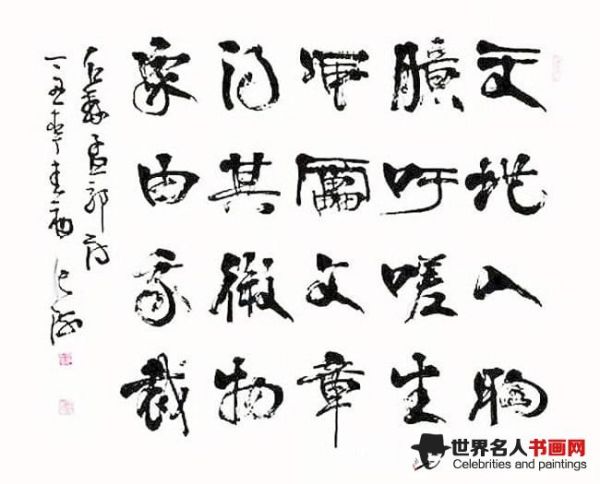 天地入胸
臆吁嗟生
風雷文章
得其微物
象由我裁
孟郊诗
世界名人书画网
Celebrities and paintings